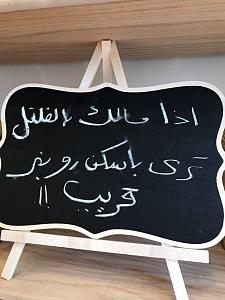 اذا مالك بالفلفل
ترى باسكن روبنز
قريب !!